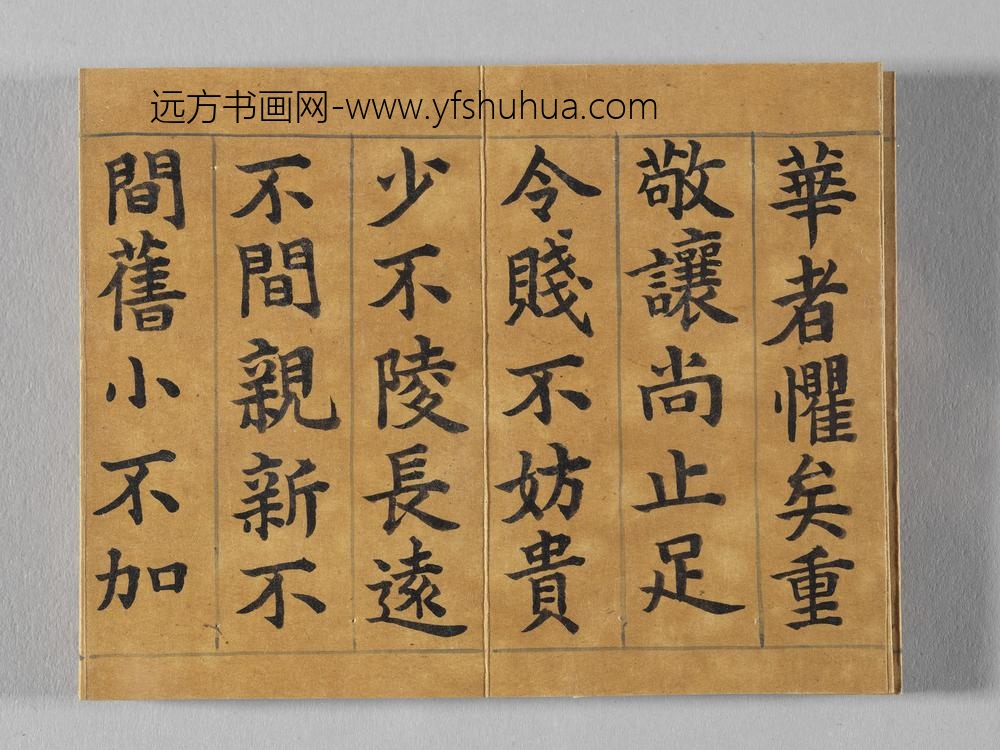 远方书画网-www.yfshuhua.com
華者懼矣重
敬讓尚止足
令賤不妨貴
少不陵長遠
不間親新不
間舊小不加